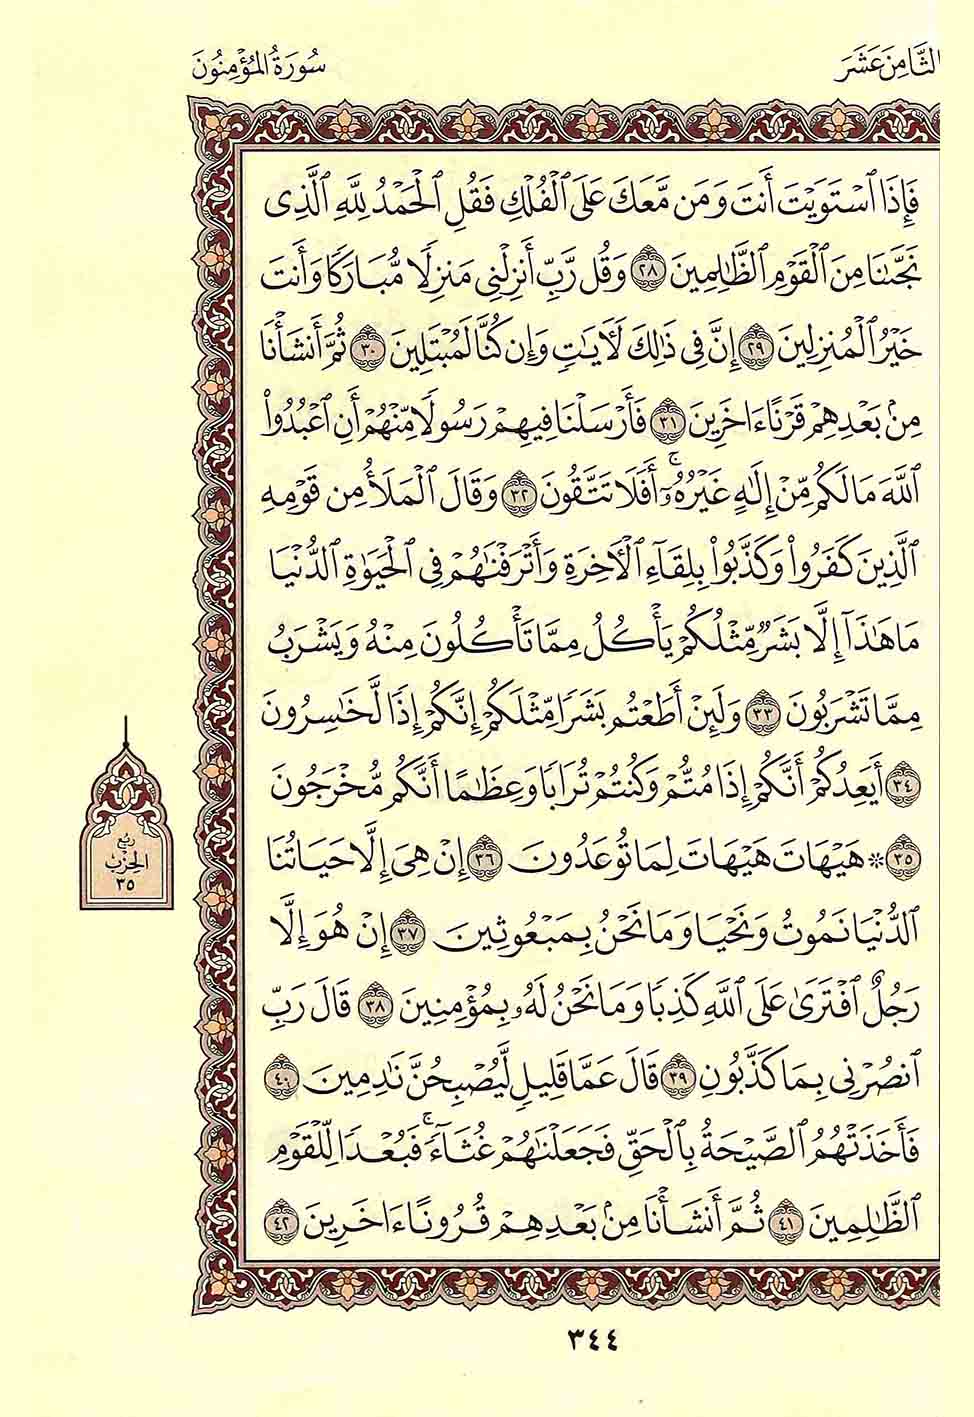 الثَّامِنَ عَشَرَ
سُورَةُ المُؤْمِنُونَ
فَإِذَا ٱسْتَوَيْتَ أَنتَ وَمَن مَّعَكَ عَلَى ٱلْفُلْكِ فَقُلِ ٱلْحَمْدُ لِلَّهِ ٱلَّذِى
نَجَّىٰنَا مِنَ ٱلْقَوْمِ ٱلظَّـٰلِمِينَ ٢٨ وَقُل رَّبِّ أَنزِلْنِى مُنزَلًا مُّبَارَكًا وَأَنتَ
خَيْرُ ٱلْمُنزِلِينَ ٢٩ إِنَّ فِى ذَٰلِكَ لَـَٔايَـٰتٍ وَإِن كُنَّا لَمُبْتَلِينَ ٣٠ ثُمَّ أَنشَأْنَا
مِنۢ بَعْدِهِمْ قَرْنًا ءَاخَرِينَ ٣١ فَأَرْسَلْنَا فِيهِمْ رَسُولًا مِّنْهُمْ أَنِ ٱعْبُدُوا۟
ٱللَّهَ مَا لَكُم مِّنْ إِلَـٰهٍ غَيْرُهُۥٓ ۚ أَفَلَا تَتَّقُونَ ٣٢ وَقَالَ ٱلْمَلَأُ مِن قَوْمِهِ
ٱلَّذِينَ كَفَرُوا۟ وَكَذَّبُوا۟ بِلِقَآءِ ٱلْـَٔاخِرَةِ وَأَتْرَفْنَـٰهُمْ فِى ٱلْحَيَوٰةِ ٱلدُّنْيَا
مَا هَـٰذَآ إِلَّا بَشَرٌ مِّثْلُكُمْ يَأْكُلُ مِمَّا تَأْكُلُونَ مِنْهُ وَيَشْرَبُ
مِمَّا تَشْرَبُونَ ٣٣ وَلَئِنْ أَطَعْتُم بَشَرًا مِّثْلَكُمْ إِنَّكُمْ إِذًا لَّخَـٰسِرُونَ
٣٤ أَيَعِدُكُمْ أَنَّكُمْ إِذَا مُتُّمْ وَكُنتُمْ تُرَابًا وَعِظَـٰمًا أَنَّكُم مُّخْرَجُونَ
٣٥ ۞ هَيْهَاتَ هَيْهَاتَ لِمَا تُوعَدُونَ ٣٦ إِنْ هِىَ إِلَّا حَيَاتُنَا
ٱلدُّنْيَا نَمُوتُ وَنَحْيَا وَمَا نَحْنُ بِمَبْعُوثِينَ ٣٧ إِنْ هُوَ إِلَّا
رَجُلٌ ٱفْتَرَىٰ عَلَى ٱللَّهِ كَذِبًا وَمَا نَحْنُ لَهُۥ بِمُؤْمِنِينَ ٣٨ قَالَ رَبِّ
ٱنصُرْنِى بِمَا كَذَّبُونِ ٣٩ قَالَ عَمَّا قَلِيلٍ لَّيُصْبِحُنَّ نَـٰدِمِينَ ٤٠
فَأَخَذَتْهُمُ ٱلصَّيْحَةُ بِٱلْحَقِّ فَجَعَلْنَـٰهُمْ غُثَآءً ۚ فَبُعْدًا لِّلْقَوْمِ
ٱلظَّـٰلِمِينَ ٤١ ثُمَّ أَنشَأْنَا مِنۢ بَعْدِهِمْ قُرُونًا ءَاخَرِينَ ٤٢
ربع
الحزب
٣٥
٣٤٤